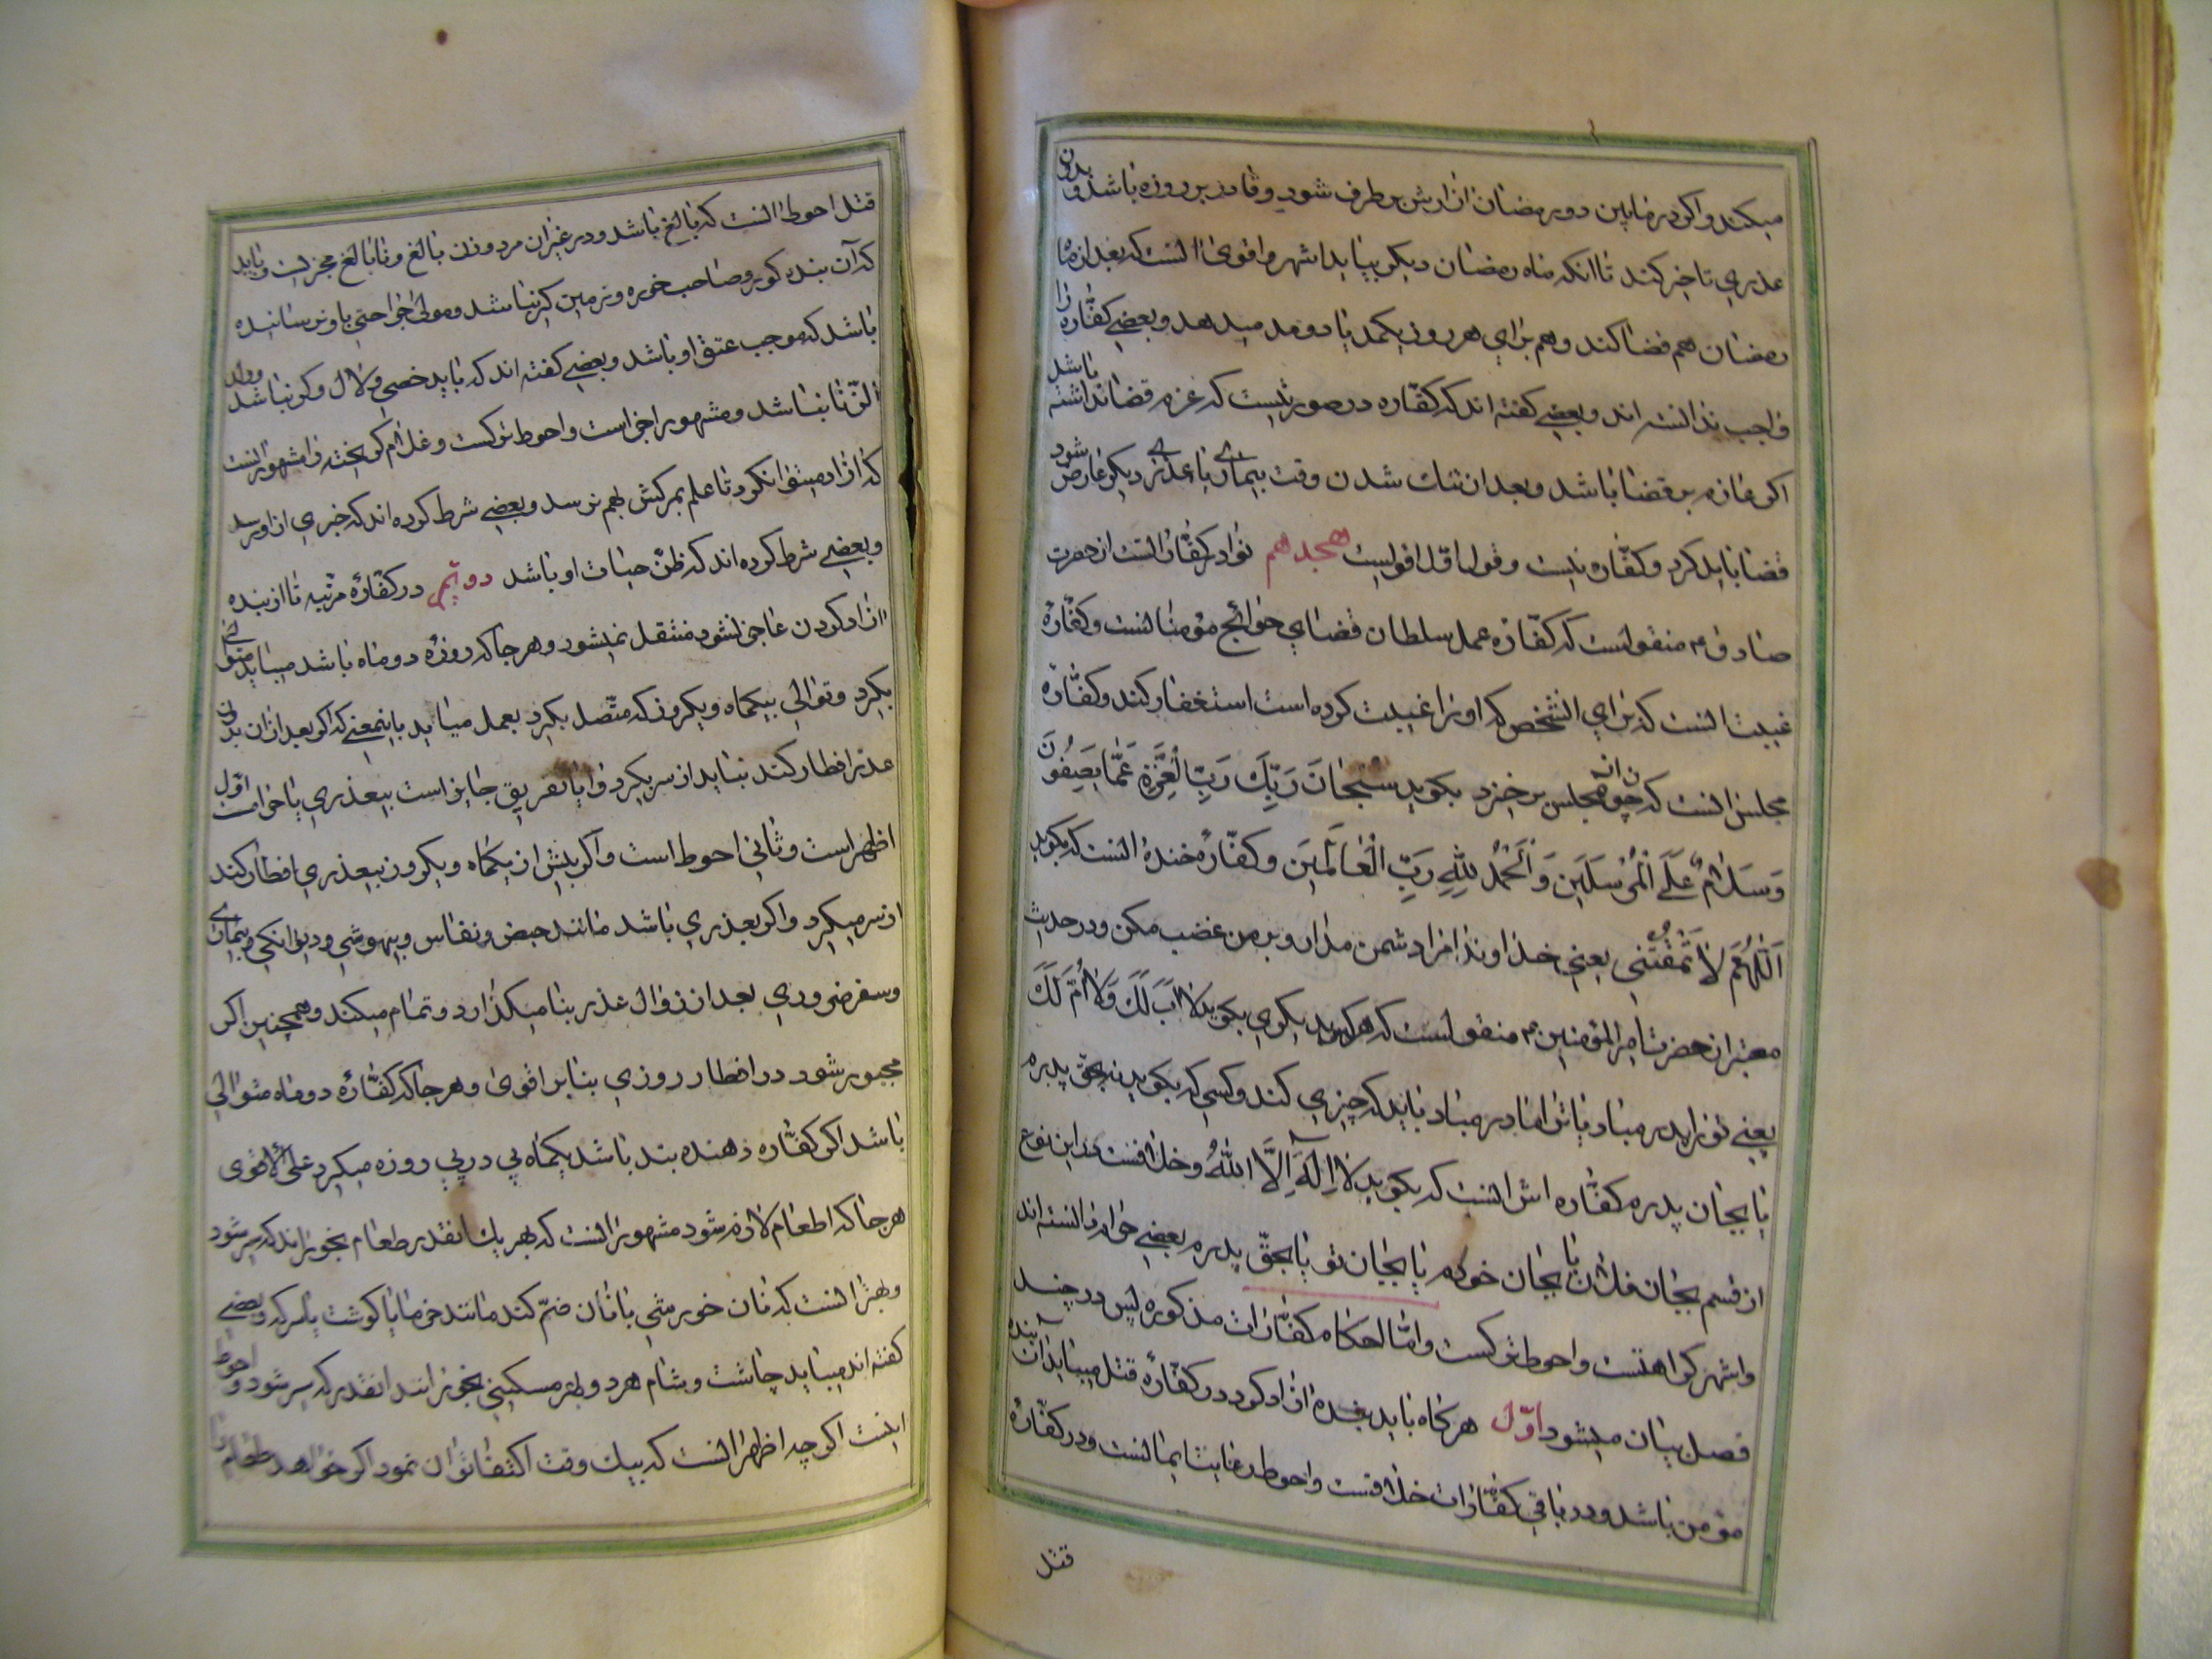 میکند و اکر در مابین دو رمضان ازارش برطرف شود و قادر بر روزه باشد و بدون
عذری تاخیر کند تا انکه ماه رمضان دیکر بیاید اشهر و اقوی انست که بعد از ماه
رمضان هم قضا کند و هم برای هر روز یکمد یا دو مد میدهد و بعضی کفّاره را
واجب ندانسته اند و بعضی کفته اند که کفّاره در صورتیست که عزم قضا نداشته باشد
اکر عازم بر قضا باشد و بعد از تنک شدن وقت بیماری یا عذری دیکر عارض شود
قضا باید کرد و کفّاره نیست و قول اوّل اقویست هجدهم نوادر کفّاراتست از حضرت
صادق ع منقولست که کفّارهٔ عمل سلطان قضای حوائج مؤمنانست و کفّارهٔ
غیبت انست که برای انشخص که او را غیبت کرده است استغفار کند و کفّارهٔ
مجلس انست که چون از مجلس برخیزد بکوید سُبْحَانَ رَبِّكَ رَبِّ الْعِزَّةِ عَمَّا يَصِفُونَ
وَسَلَامٌ عَلَى الْمُرْسَلِينَ وَالْحَمْدُ لِلَّهِ رَبِّ الْعَالَمِينَ و کفّارهٔ خنده انست که بکوید
اَللّٰهُمَّ لَا تَمْقُتْنِي یعنی خداوندا مرا دشمن مدار و بر من غضب مکن و در حدیث
معتبر از حضرت امیر المؤمنین ع منقولست که هر که بدیکری بکوید لَا اَبَ لَكَ وَلَا اُمَّ لَكَ
یعنی تو را پدر مباد یا ترا مادر مباد باید که چیزی کند و کسی که بکوید نه بحق پدرم
یا بجان پدرم کفّاره اش انست که بکوید لَا اِلٰهَ اِلَّا اللّٰهُ و خلافست در این نوع
از قسم بجان فلان یا بجان خودم یا بجان تو یا بحقّ پدرم بعضی حرام دانسته اند
و اشهر کراهتست و احوط ترکست و امّا احکام کفّارات مذکوره پس در چند
فصل بیان میشود اوّل هر کاه باید بنده ازاد کرد در کفّارهٔ قتل میباید ان بنده
مؤمن باشد و در باقی کفّارات خلافست و احوط رعایت ایمانست و در کفّارهٔ
قتل
قتل احوط انست که بالغ باشد و در غیر ان مرد و زن بالغ و نابالغ مجزیست و باید
که آن بنده کور و صاحب خوره و زمین کیر نباشد و مولی جراحتی باو نرسانیده
باشد که موجب عتق او باشد و بعضی کفته اند که باید خصی و لال و کر نباشد و ولد
الزّنا نباشد و مشهور اجزاست و احوط ترکست و غلام کریخته را مشهور انست
که ازاد میتوانکرد تا علم بمرکش بهم نرسد و بعضی شرط کرده اند که خبری از او برسد
و بعضی شرط کرده اند که ظنّ حیات او باشد دویّم در کفّارهٔ مرتّبه تا از بنده
ازاد کردن عاجز نشود منتقل نمیشود و هر جا که روزهٔ دو ماه باشد میباید متوالی
بکیرد و توالی بیکماه و یکروز که متّصل بکیرد بعمل میاید باینمعنی که اکر بعد از ان بدون
عذر افطار کند نباید از سر بکیرد و ایا تفریق جایز است بیعذری یا حرامست اوّل
اظهر است و ثانی احوط است و اکر پیش از یکماه و یکروز بیعذری افطار کند
از سر میکیرد و اکر بعذری باشد مانند حیض و نفاس و بیهوشی و دیوانکی و بیماری
و سفر ضروری بعد از زوال عذر بنا میکذارد و تمام میکند و همچنین اکر
مجبور شود در افطار روزی بنا بر اقوی و هر جا که کفّارهٔ دو ماه متوالی
باشد اکر کفّاره دهنده بنده باشد یکماه پی در پی روزه میکیرد علی الاقوی
هر جا که اطعام لازم شود مشهور انست که بهر یک انقدر طعام بخوراند که سیر شود
و بهتر انست که نان خورشی با نان ضمّ کند مانند خرما یا کوشت یا سرکه و بعضی
کفته اند میباید چاشت و شام هر دو بهر مسکینی بخوراند انقدر که سیر شود و احوط
اینست اکر چه اظهر انست که بیک وقت اکتفا توان نمود اکر خواهد طعام را